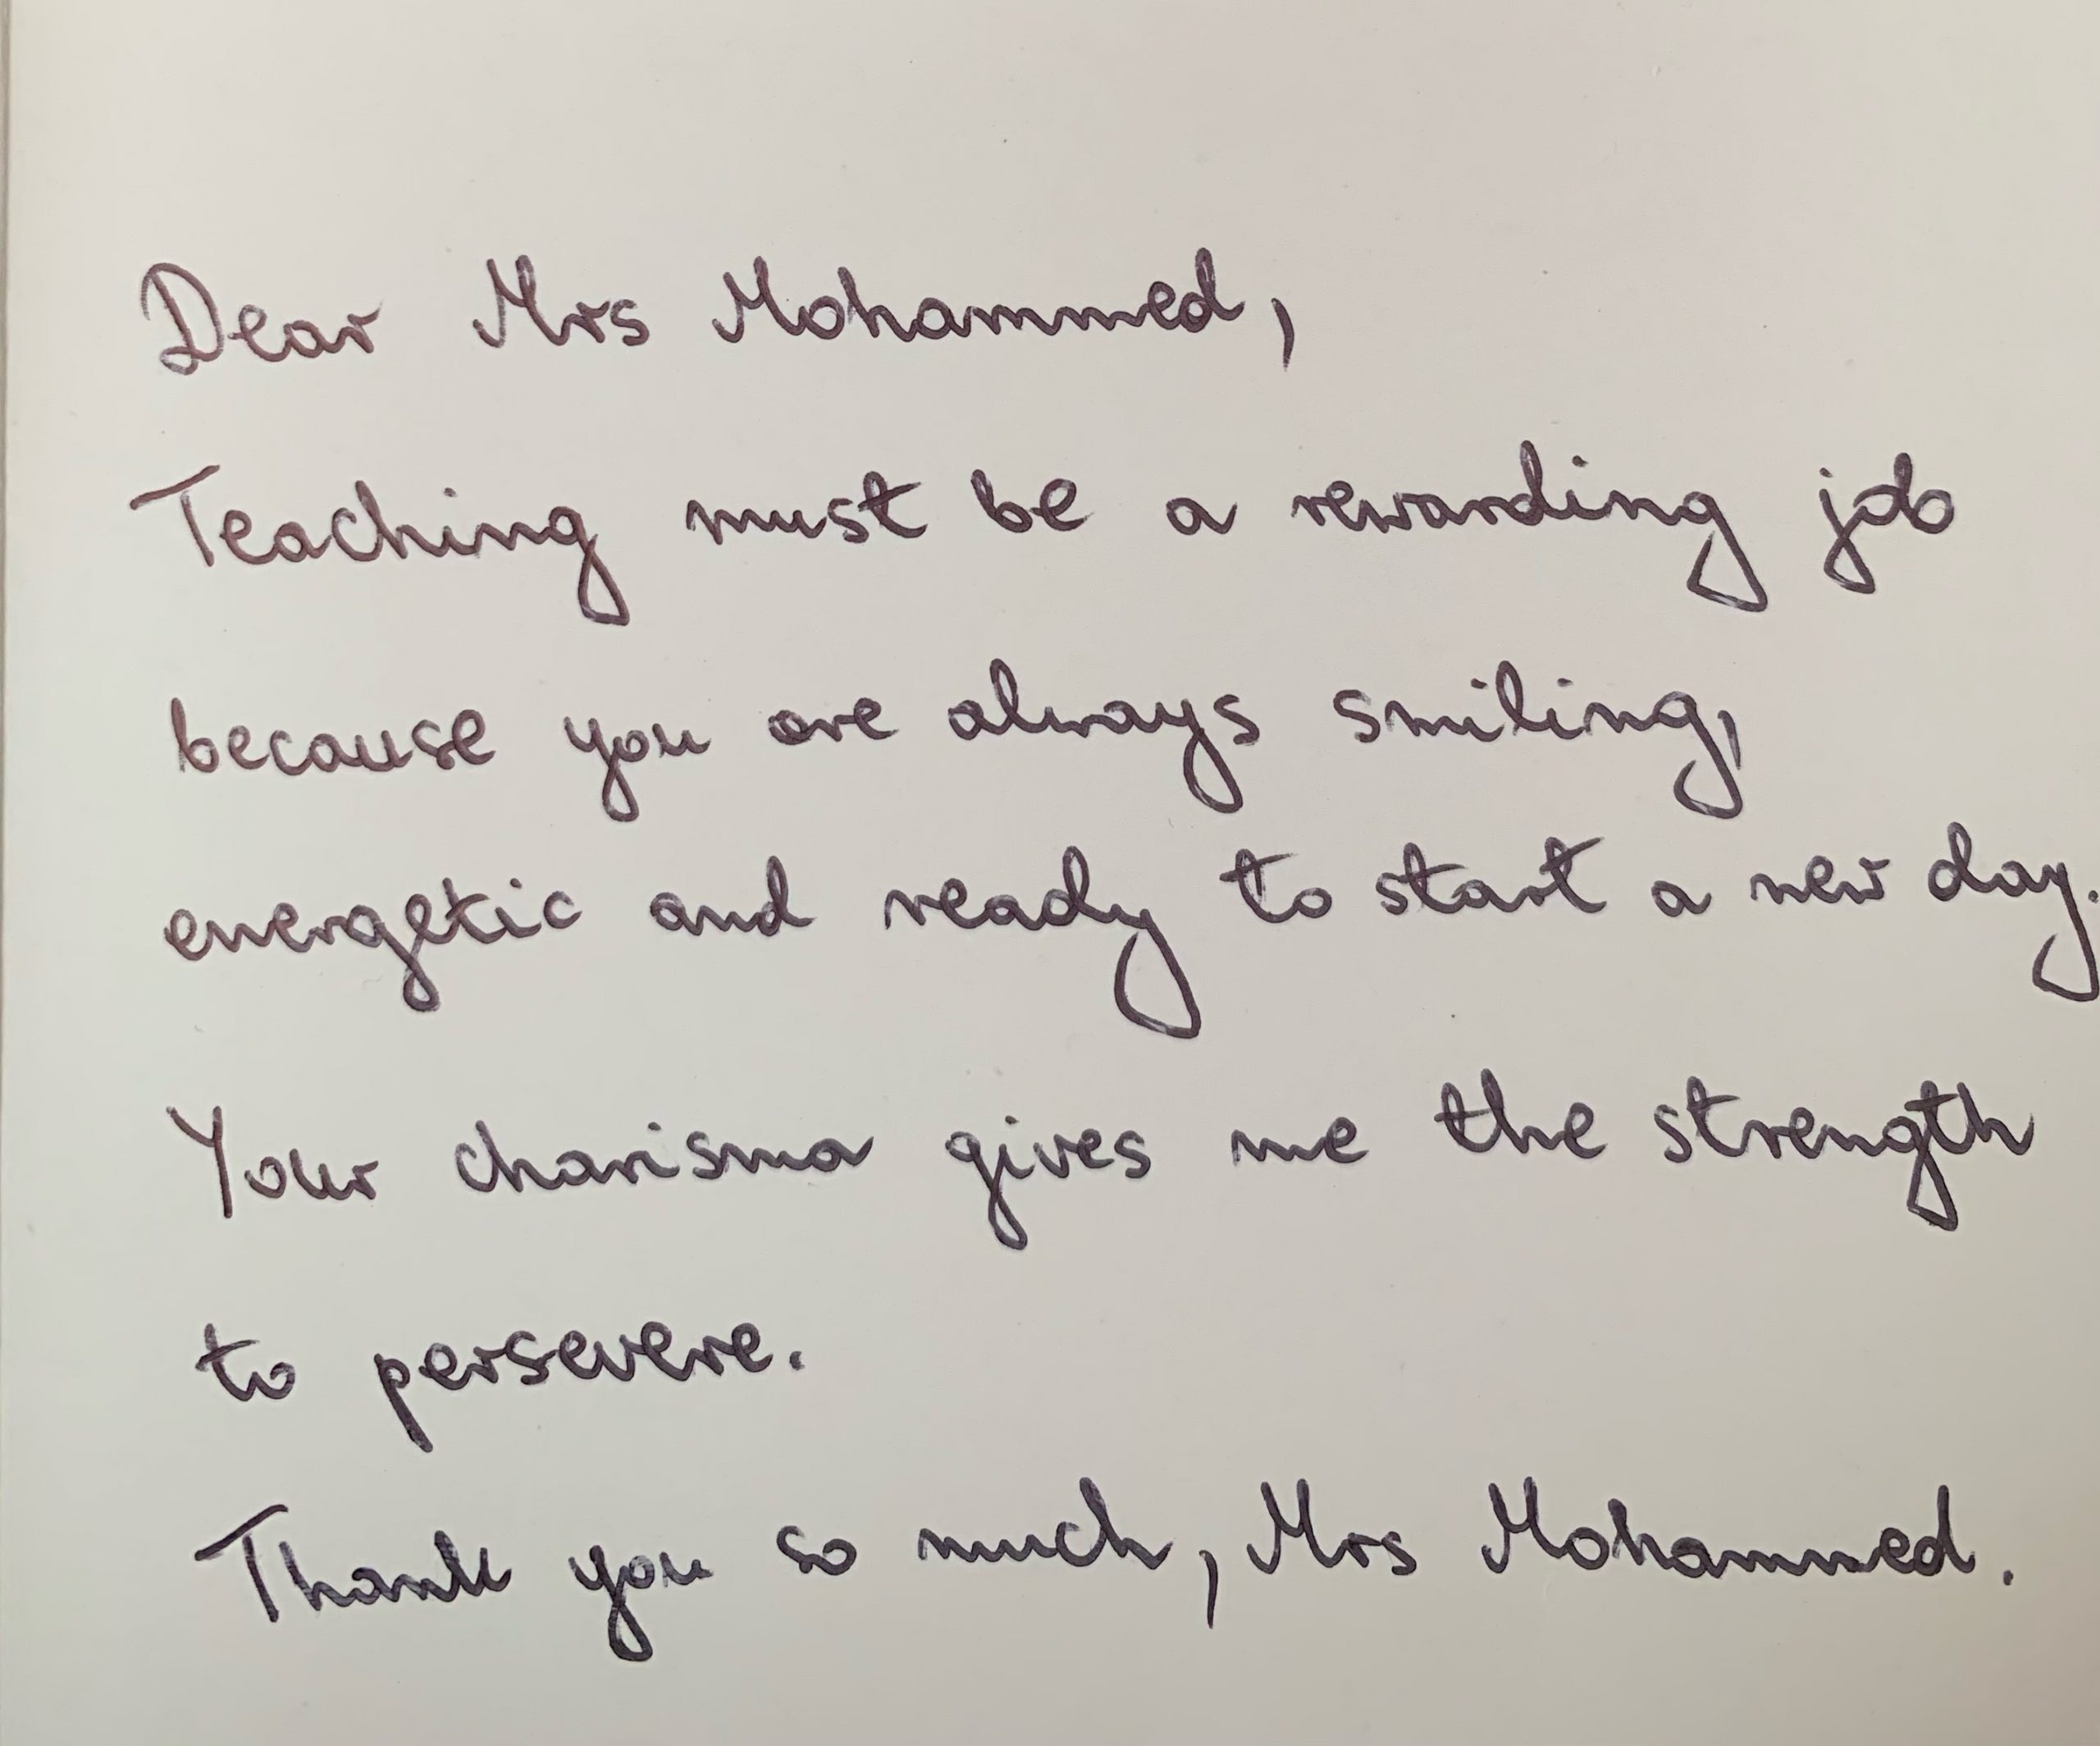 Dear Mrs Mohammed,
Teaching must be a rewarding job
because you are always smiling,
energetic and ready to start a new day.
Your charisma gives me the strength
to persevere.
Thank you so much, Mrs Mohammed.